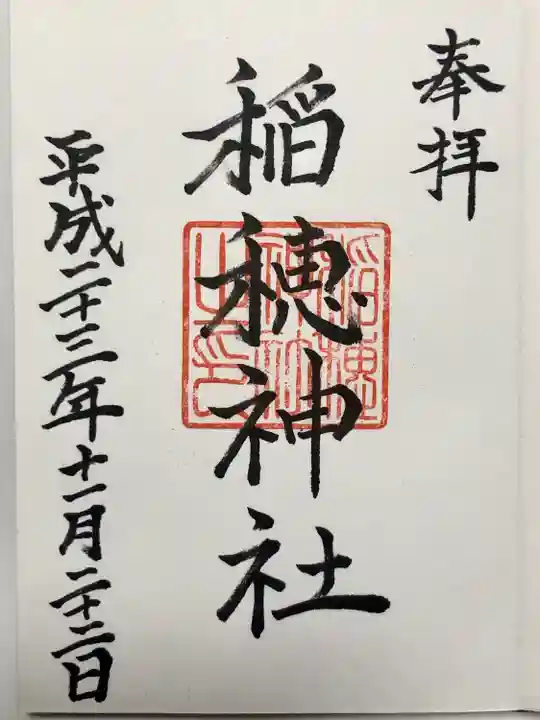 奉拝
稲穂神社
稲穂神社之印
平成二十三年十一月二十二日